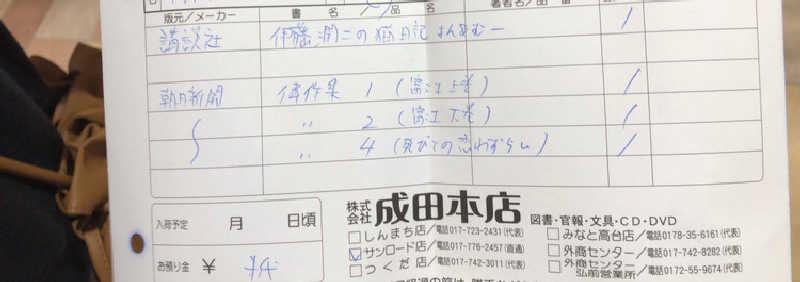 版元／メーカー 書名／品名 著者名／品番
講談社 伊藤潤二の猫日記よん&むー 1
朝日新聞 傑作集 1 (富江上巻) 1
〃 2 (富江下巻) 1
〃 4 (死びとの恋わずらい) 1
入荷予定 月 日頃
お預り金 ¥
株式会社 成田本店 図書・官報・文具・CD・DVD
しんまち店／電話017-723-2431(代表) みなと高台店／電話0178-35-6161(代表)
サンロード店／電話017-776-2457(直通) 外商センター／電話017-742-8282(代表)
つくだ店／電話017-742-3011(代表) 外商センター弘前営業所／電話0172-55-9674(代表)